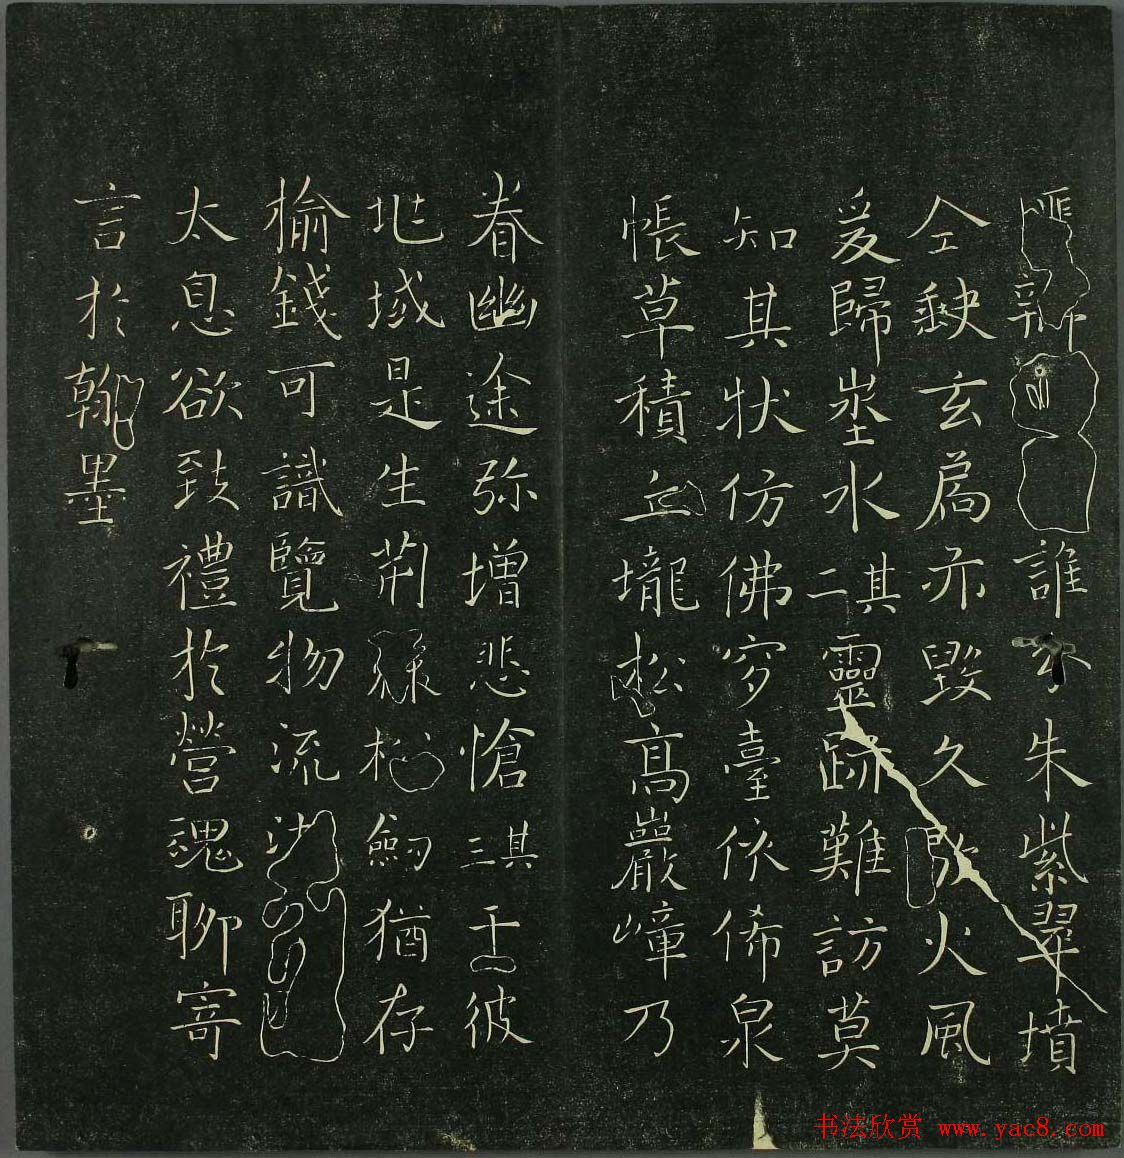 誰分朱紫翠墳
全缺玄扃亦毀久歇火風
爰歸埊水其二靈跡難訪莫
知其狀仿佛穸臺依俙泉
帳草積丘壠松高巖嶂乃
眷幽途弥增悲愴其三于彼
域是生荆棘松劒猶存
榆錢可識覽物流
太息欲致禮於營魂聊寄
言於翰墨
书法欣赏 www.yac8.com